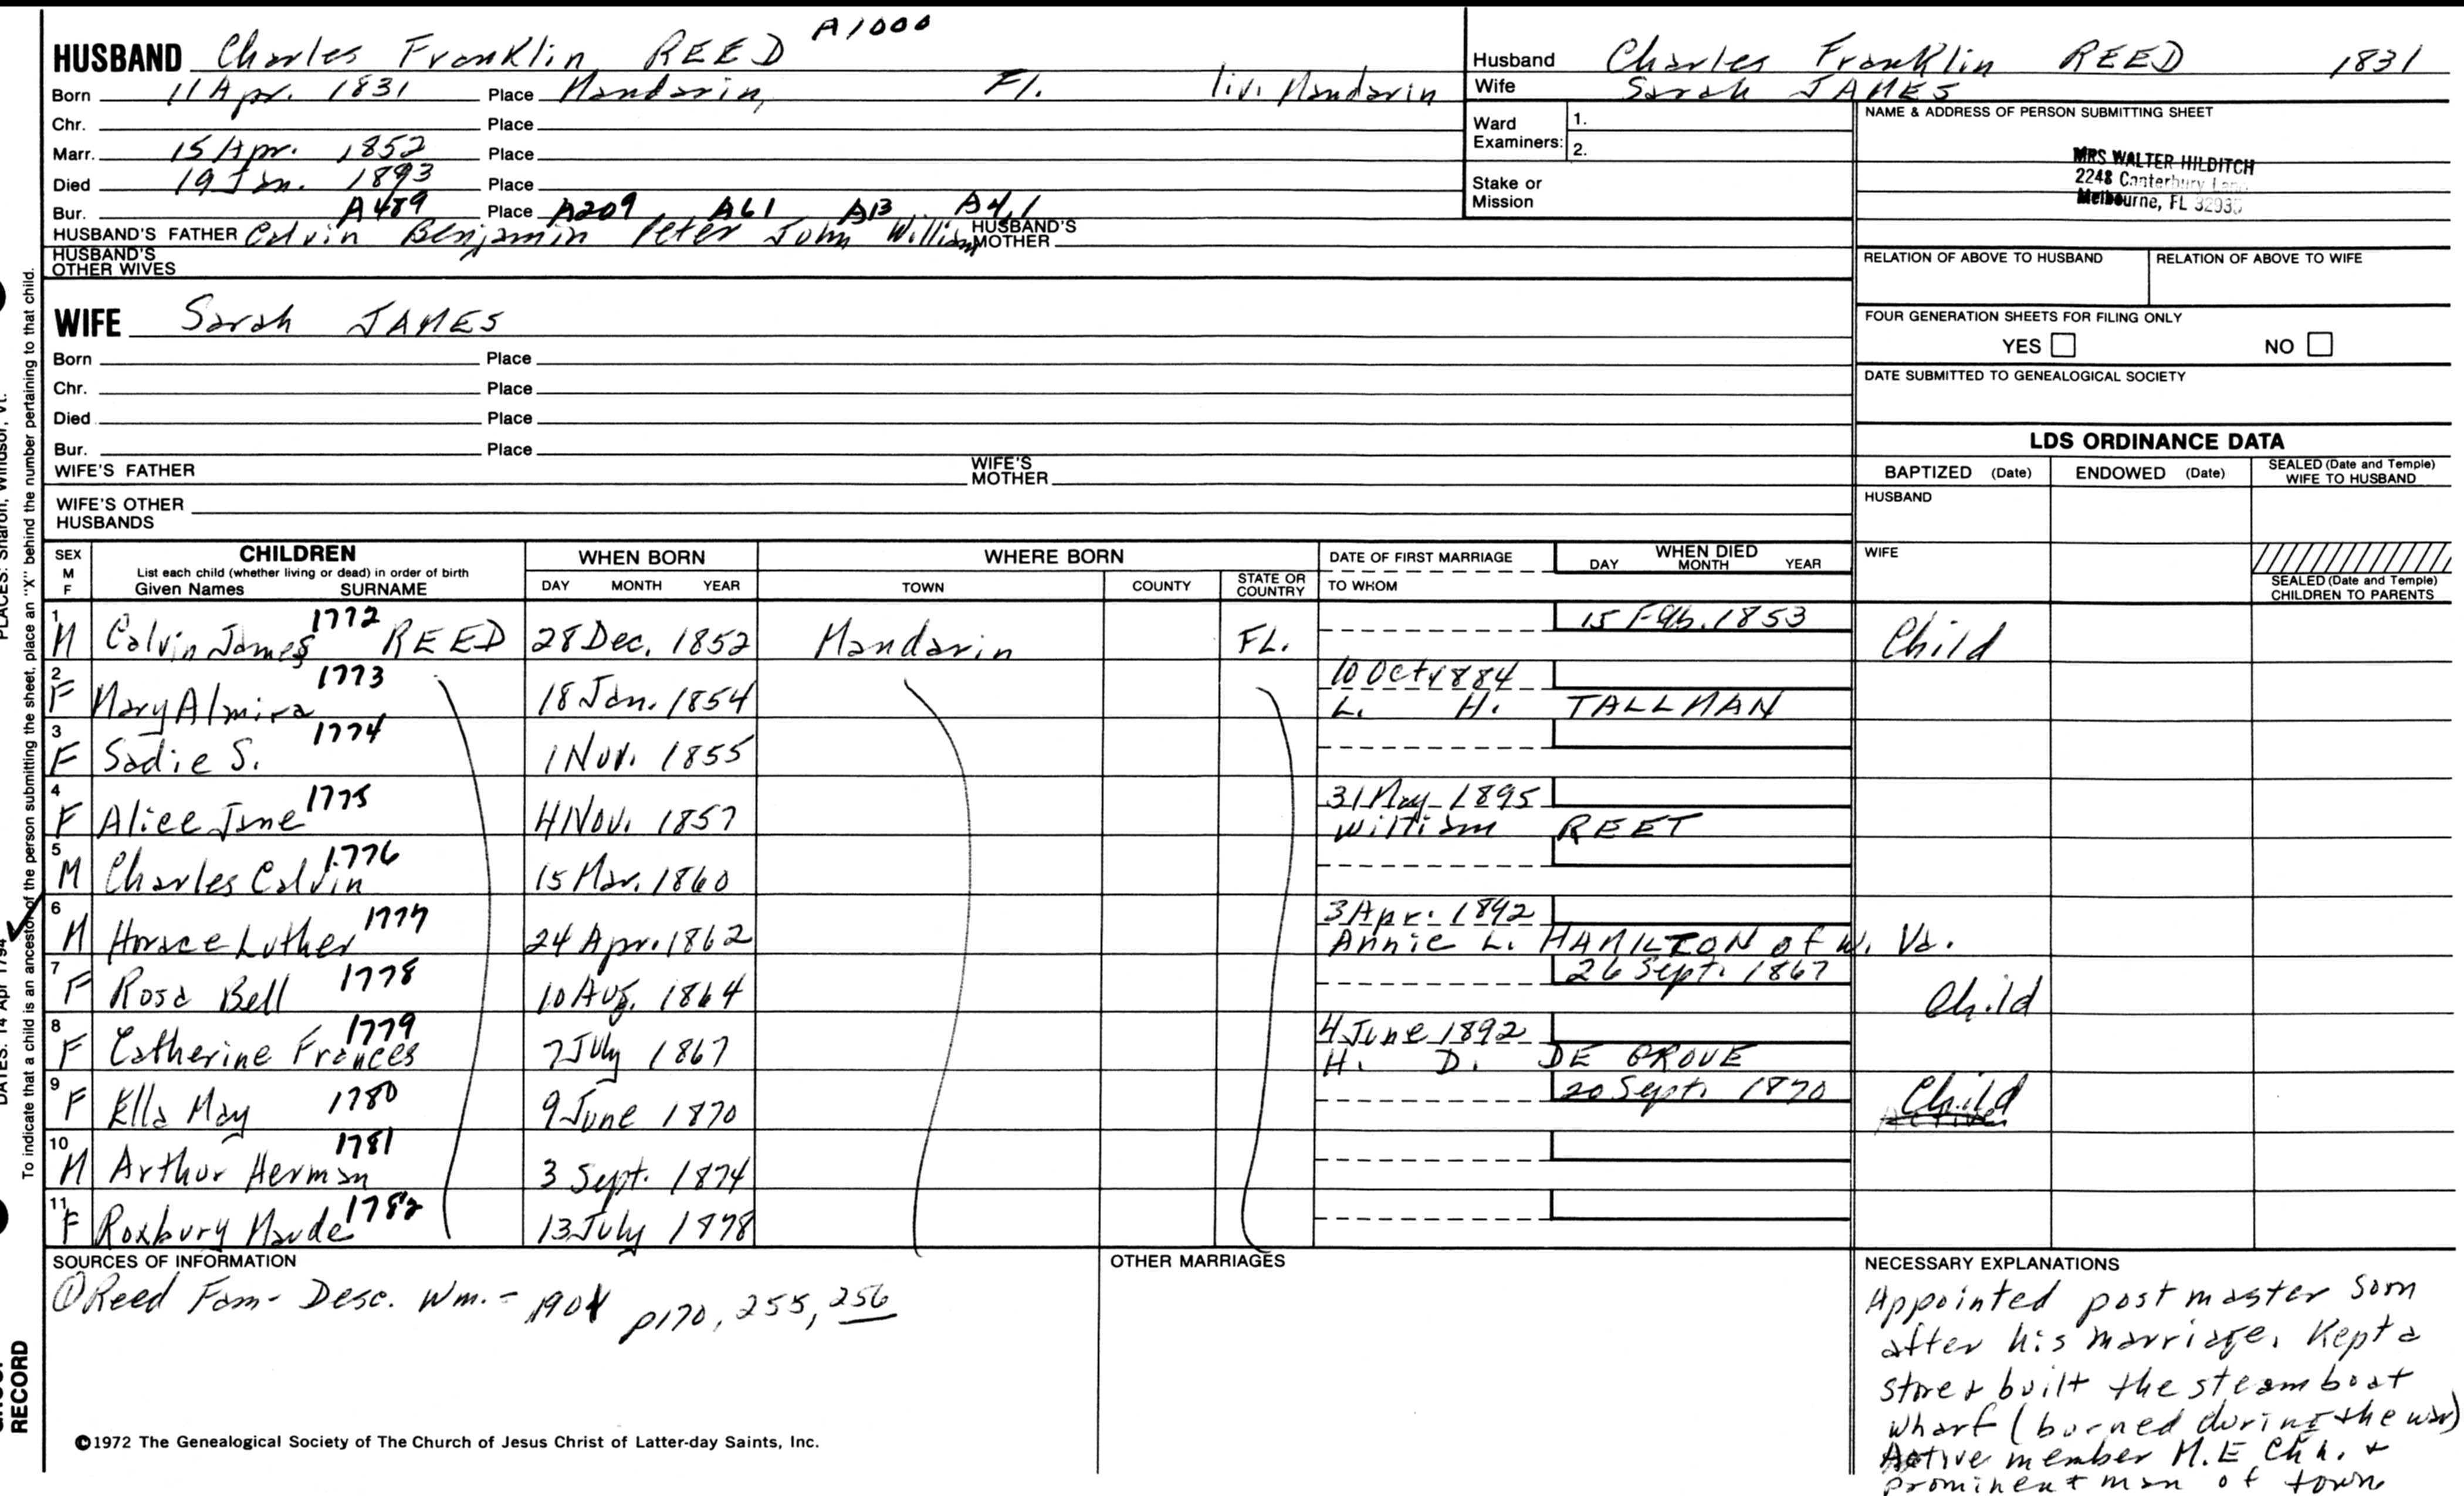 A1000
HUSBAND Charles Franklin REED
Born 11 Apr. 1831 Place Mandarin, Fl. liv. Mandarin
Chr. Place
Marr. 15 Apr. 1852 Place
Died 19 Jan. 1893 Place
Bur. A489 Place A209 A61 A13 A4,1
HUSBAND'S FATHER Calvin Benjamin Peter John William HUSBAND'S MOTHER
HUSBAND'S OTHER WIVES
WIFE Sarah JAMES
Born Place
Chr. Place
Died Place
Bur. Place
WIFE'S FATHER WIFE'S MOTHER
WIFE'S OTHER HUSBANDS
Husband Charles Franklin REED 1831
Wife Sarah JAMES
Ward Examiners: 1.
2.
Stake or Mission
NAME & ADDRESS OF PERSON SUBMITTING SHEET
MRS WALTER HILDITCH
2248 Canterbury Lane
Melbourne, FL 32935
RELATION OF ABOVE TO HUSBAND RELATION OF ABOVE TO WIFE
FOUR GENERATION SHEETS FOR FILING ONLY
YES NO
DATE SUBMITTED TO GENEALOGICAL SOCIETY
LDS ORDINANCE DATA
BAPTIZED (Date) ENDOWED (Date) SEALED (Date and Temple) WIFE TO HUSBAND
HUSBAND
WIFE
SEALED (Date and Temple) CHILDREN TO PARENTS
SEX M F CHILDREN List each child (whether living or dead) in order of birth Given Names SURNAME
WHEN BORN DAY MONTH YEAR
WHERE BORN TOWN COUNTY STATE OR COUNTRY
DATE OF FIRST MARRIAGE TO WHOM
WHEN DIED DAY MONTH YEAR
1 M Calvin James 1772 REED 28 Dec. 1852 Mandarin FL. 15 Feb. 1853 Child
2 F Mary Almira 1773 18 Jan. 1854 10 Oct 1884 L. H. TALLMAN
3 F Sadie S. 1774 1 Nov. 1855
4 F Alice Jane 1775 4 Nov. 1857 31 May 1895 William REET
5 M Charles Calvin 1776 15 Mar. 1860
6 M Horace Luther 1777 24 Apr. 1862 3 Apr. 1892 Annie L. HAMILTON of W. Va.
7 F Rosa Bell 1778 10 Aug. 1864 26 Sept. 1867 Child
8 F Catherine Frances 1779 7 July 1867 4 June 1892 H. D. DE GROVE
9 F Ella May 1780 9 June 1870 20 Sept. 1870 Child
10 M Arthur Herman 1781 3 Sept. 1874
11 F Roxbury Maude 1782 13 July 1878
SOURCES OF INFORMATION
① Reed Fam- Desc. Wm. - 1901 p170, 255, 256
OTHER MARRIAGES
NECESSARY EXPLANATIONS
Appointed postmaster soon
after his marriage. Kept a
store & built the steamboat
wharf (burned during the war)
Active member M.E Chh. &
prominent man of town
©1972 The Genealogical Society of The Church of Jesus Christ of Latter-day Saints, Inc.
PLACES: Sharon, Windsor, Vt.
DATES: 14 Apr 1794
To indicate that a child is an ancestor of the person submitting the sheet, place an "X" behind the number pertaining to that child.
RECORD